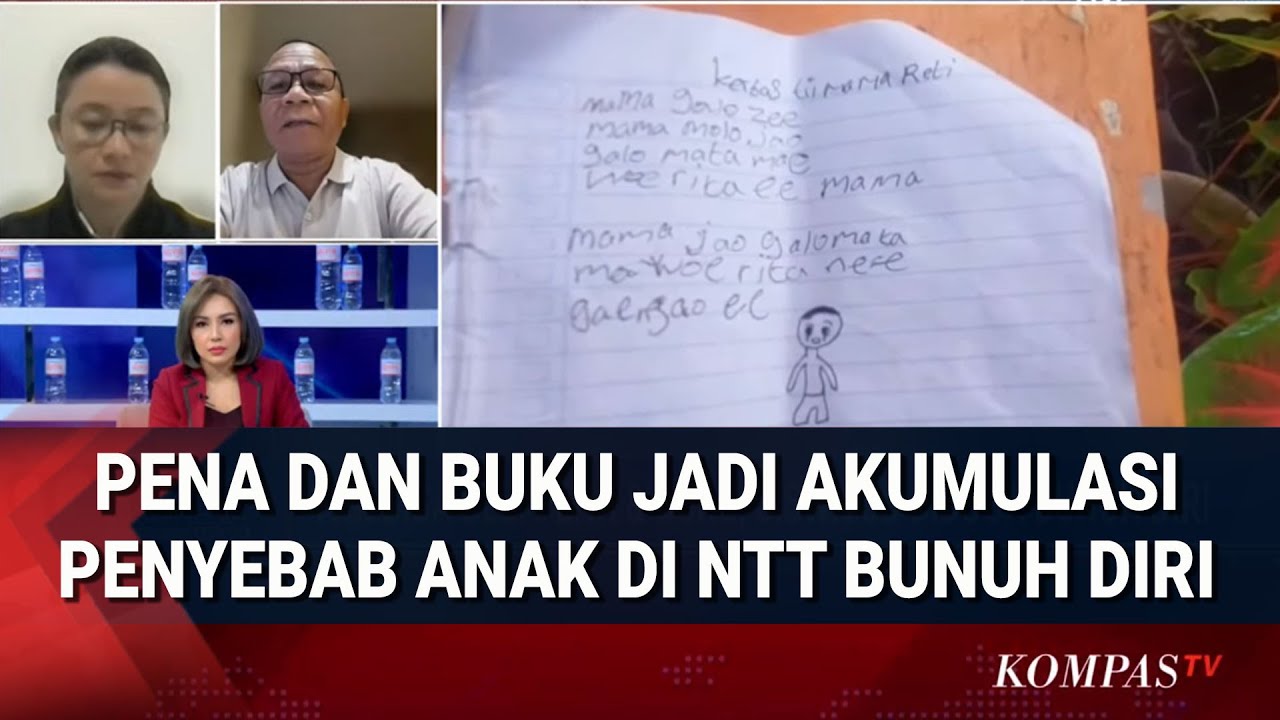 Kertas tii mama Reti
mama galo zee
mama molo jao
galo mata mae
woe rita ee mama
mama jao galo mata
mae woe rita ne'e
gae ngao ee
PENA DAN BUKU JADI AKUMULASI
PENYEBAB ANAK DI NTT BUNUH DIRI
KOMPAS TV